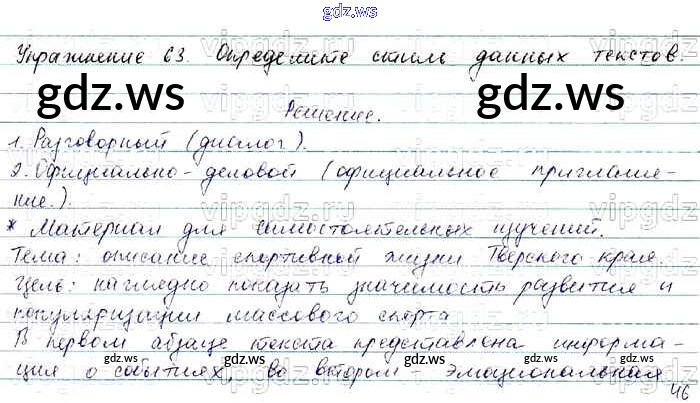 gdz.ws
Упражнение 63. Определите стиль данных текстов.
gdz.ws gdz.ws
Решение.
1. Разговорный (диалог).
2. Официально-деловой (официальное приглаше-
ние.).
* Материал для самостоятельных изучений.
Тема: описание спортивный жизни Тверского края.
Цель: наглядно показать значимость развития и
популяризации массового спорта
В первом абзаце текста представлена информа-
gdz.ws gdz.ws gdz.ws
ция о событиях, во втором - эмоциональная
46